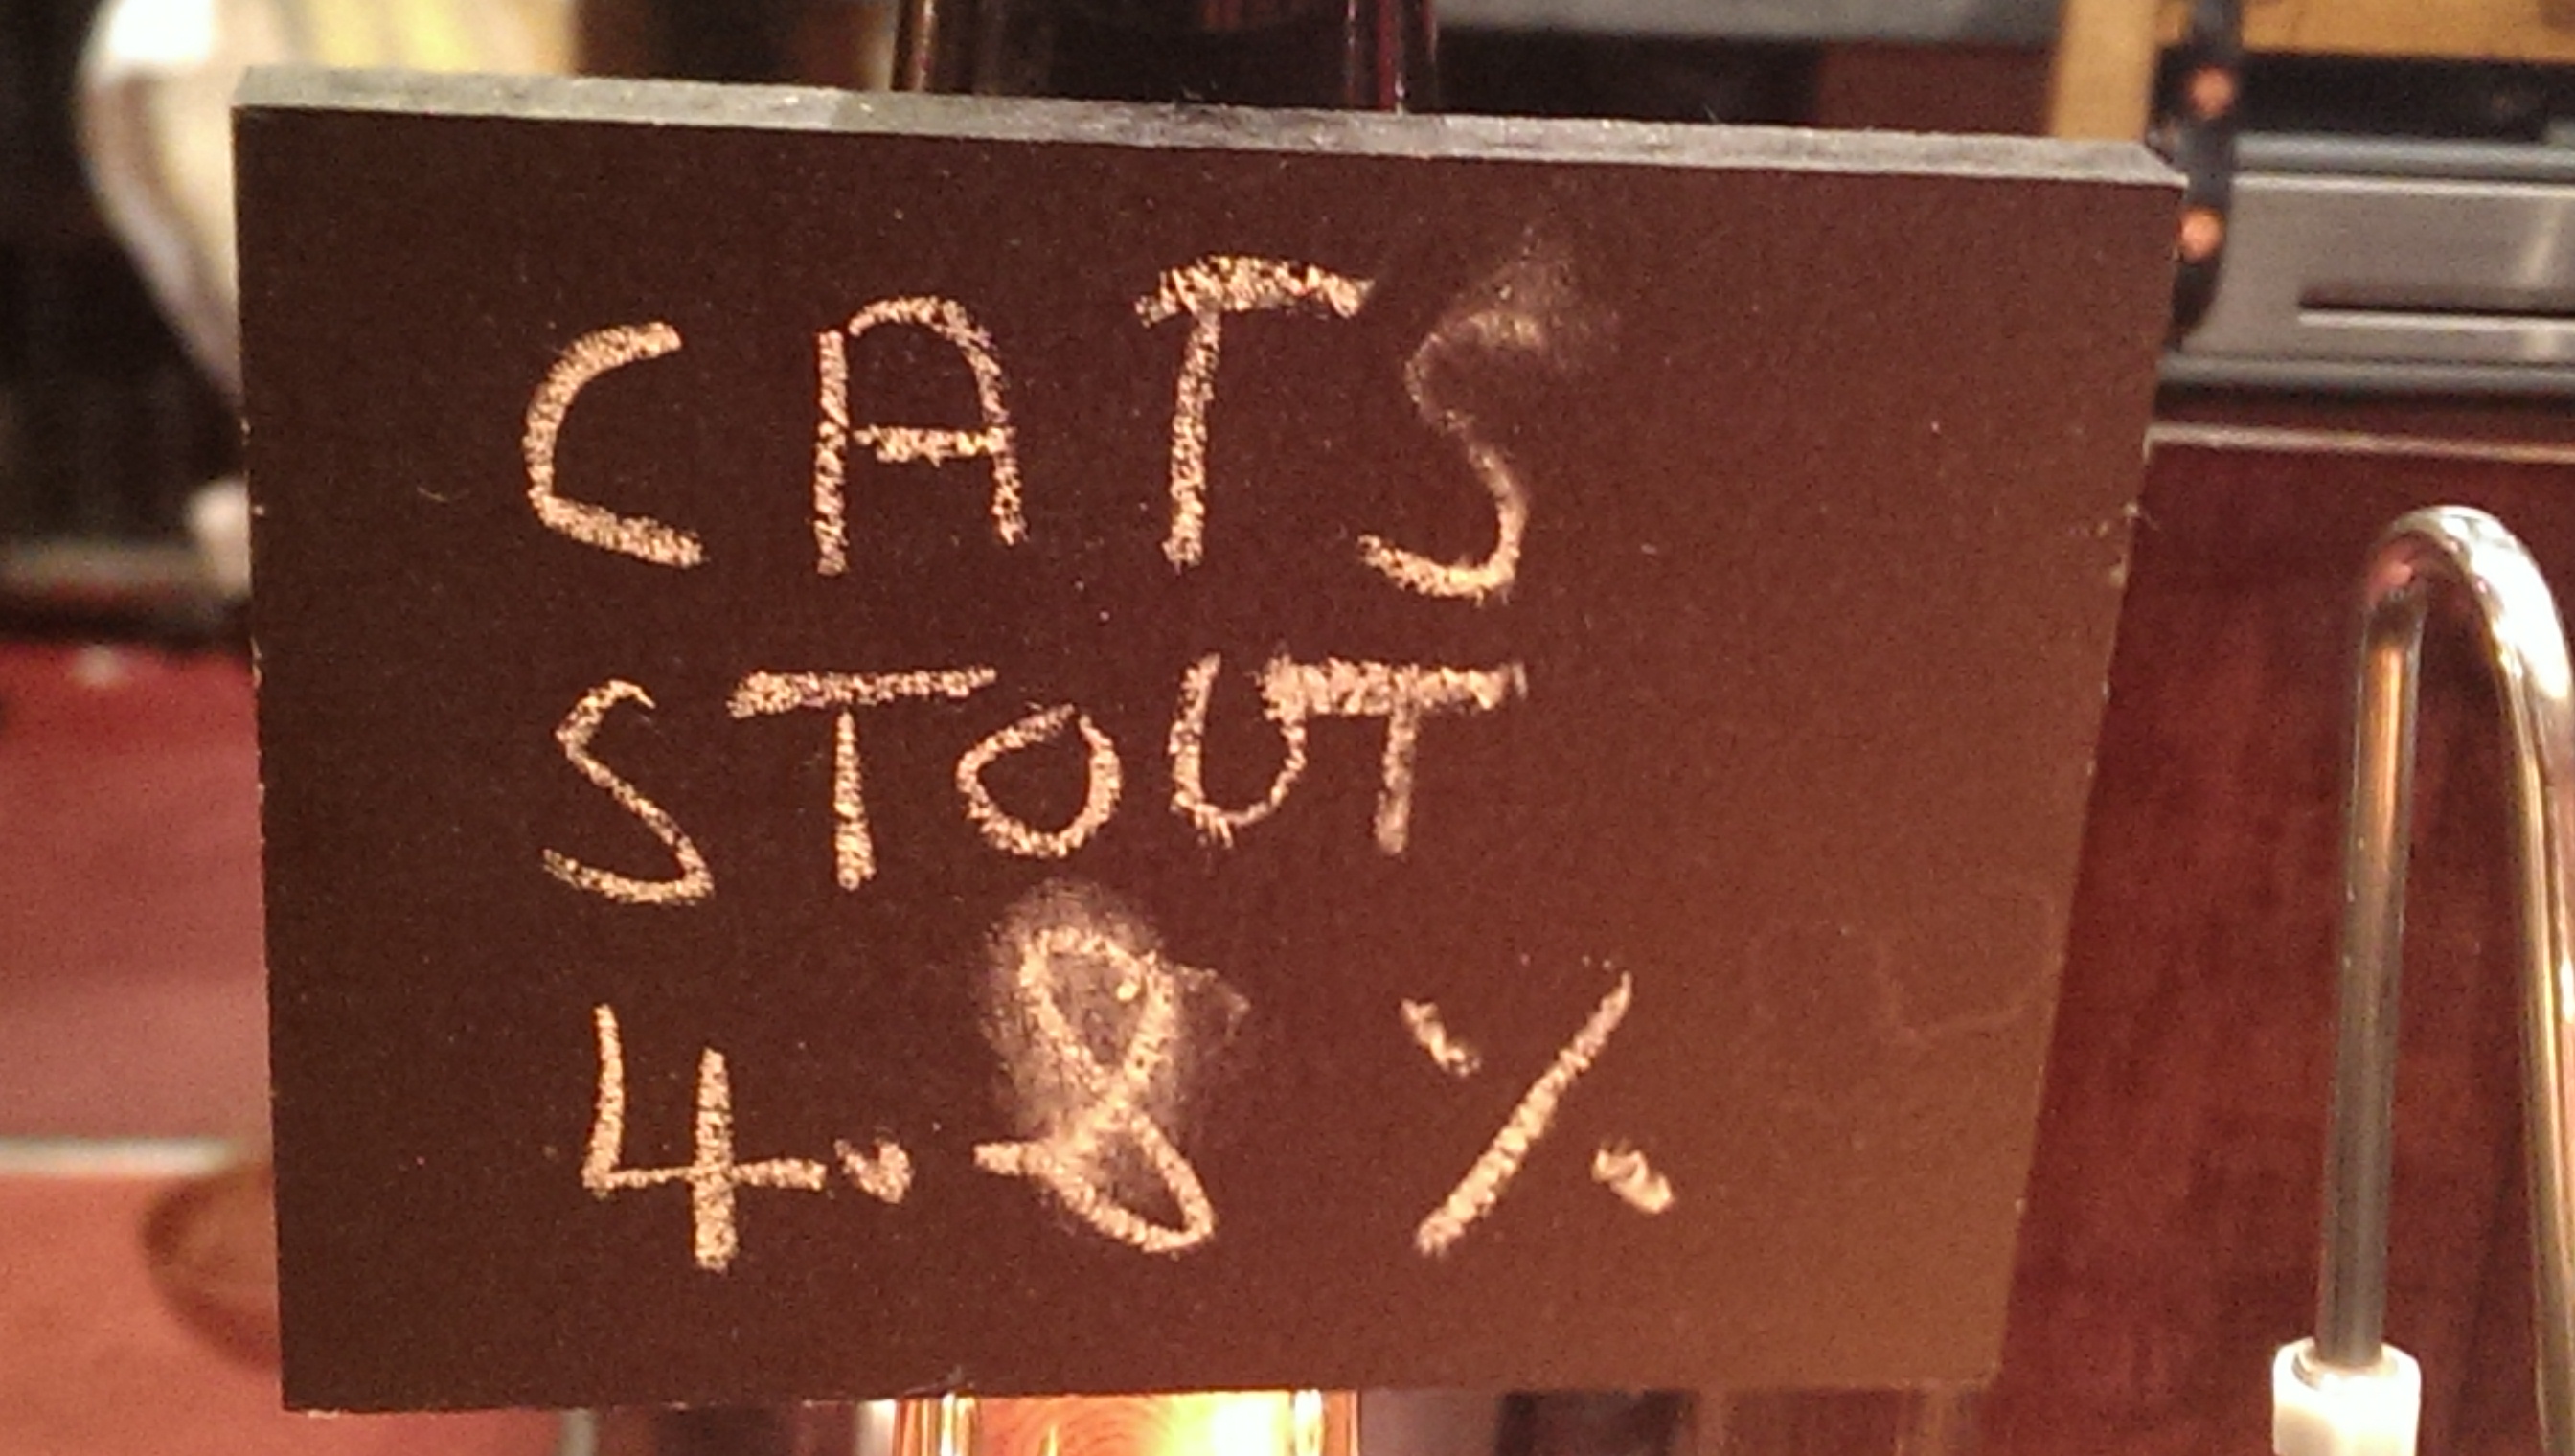 CATS
STOUT
4.8%